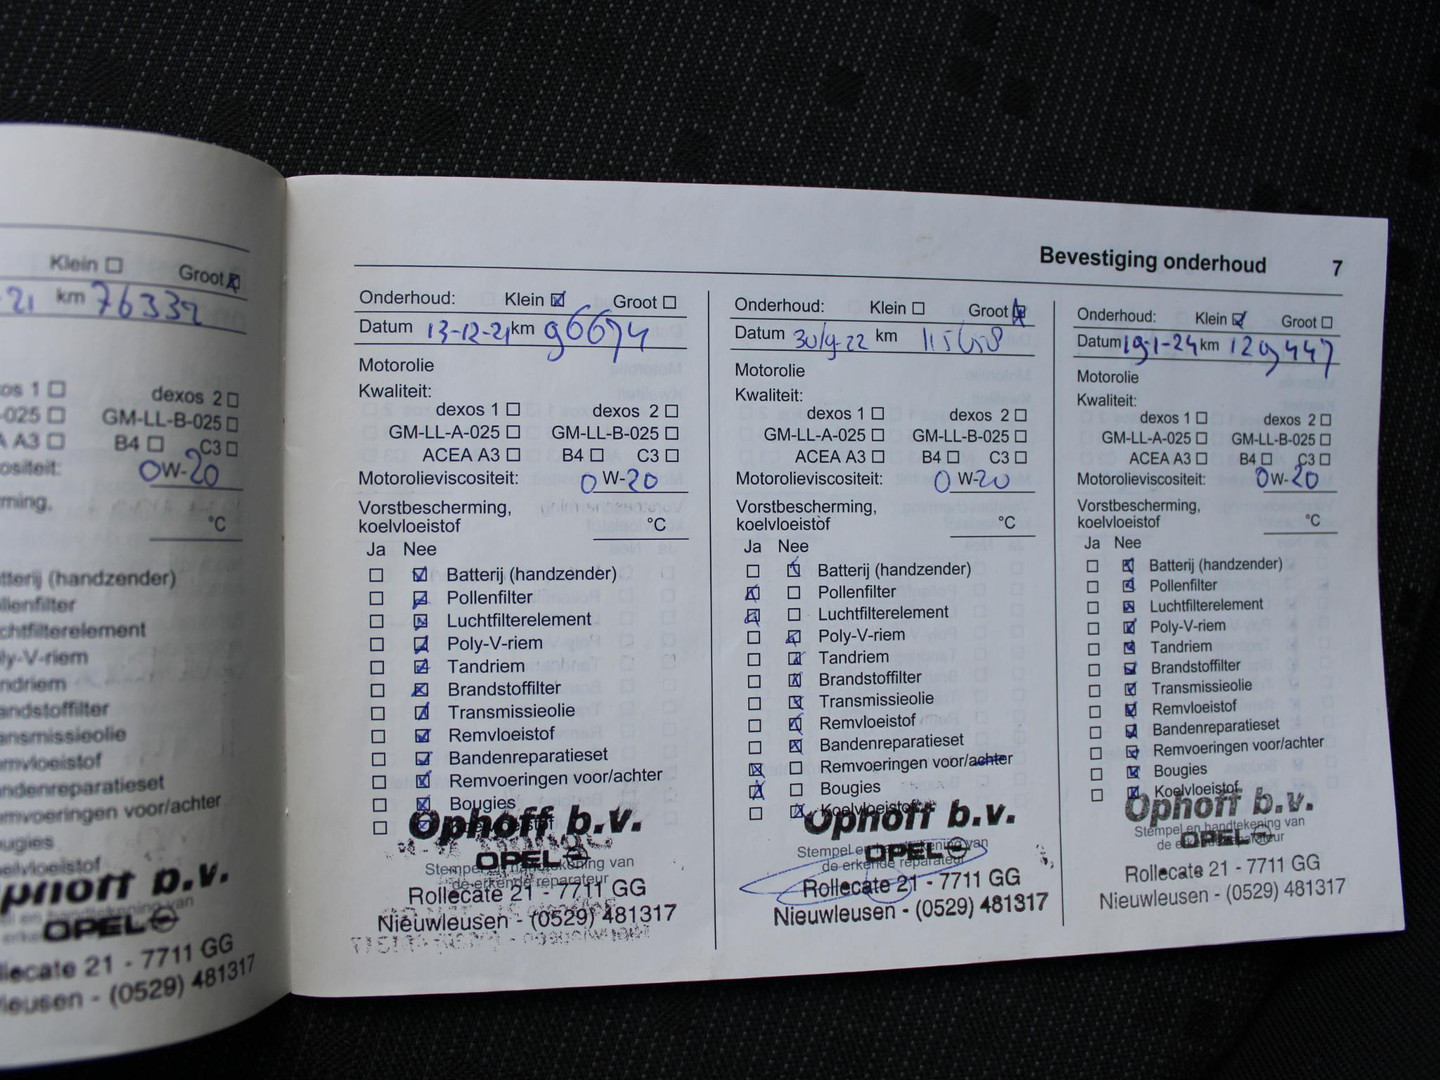 Klein Groot
21 km 76332
os 1 dexos 2
-025 GM-LL-B-025
A A3 B4 C3
ositeit: 0W-20
rming,
°C
tterij (handzender)
llenfilter
chtfilterelement
ly-V-riem
ndriem
andstoffilter
ansmissieolie
mvloeistof
ndenreparatieset
mvoeringen voor/achter
ugies
elvloeistof
phoff b.v.
OPEL
llecate 21 - 7711 GG
ieuwleusen - (0529) 481317
Bevestiging onderhoud 7
Onderhoud: Klein Groot
Datum 13-12-21 km 96674
Motorolie
Kwaliteit:
dexos 1 dexos 2
GM-LL-A-025 GM-LL-B-025
ACEA A3 B4 C3
Motorolieviscositeit: 0W-20
Vorstbescherming,
koelvloeistof °C
Ja Nee
Batterij (handzender)
Pollenfilter
Luchtfilterelement
Poly-V-riem
Tandriem
Brandstoffilter
Transmissieolie
Remvloeistof
Bandenreparatieset
Remvoeringen voor/achter
Bougies
Ophoff b.v.
OPEL
Stempel en handtekening van
de erkende reparateur
Rollecate 21 - 7711 GG
Nieuwleusen - (0529) 481317
Onderhoud: Klein Groot
Datum 30/9-22 km
Motorolie
Kwaliteit:
dexos 1 dexos 2
GM-LL-A-025 GM-LL-B-025
ACEA A3 B4 C3
Motorolieviscositeit: 0W-20
Vorstbescherming,
koelvloeistof °C
Ja Nee
Batterij (handzender)
Pollenfilter
Luchtfilterelement
Poly-V-riem
Tandriem
Brandstoffilter
Transmissieolie
Remvloeistof
Bandenreparatieset
Remvoeringen voor/achter
Bougies
Koelvloeistof
Ophoff b.v.
Stempel en handtekening van
OPEL
de erkende reparateur
Rollecate 21 - 7711 GG
Nieuwleusen - (0529) 481317
Onderhoud: Klein Groot
Datum 19-1-24 km 129447
Motorolie
Kwaliteit:
dexos 1 dexos 2
GM-LL-A-025 GM-LL-B-025
ACEA A3 B4 C3
Motorolieviscositeit: 0W-20
Vorstbescherming,
koelvloeistof °C
Ja Nee
Batterij (handzender)
Pollenfilter
Luchtfilterelement
Poly-V-riem
Tandriem
Brandstoffilter
Transmissieolie
Remvloeistof
Bandenreparatieset
Remvoeringen voor/achter
Bougies
Koelvloeistof
Ophoff b.v.
Stempel en handtekening van
OPEL
de erkende reparateur
Rollecate 21 - 7711 GG
Nieuwleusen - (0529) 481317